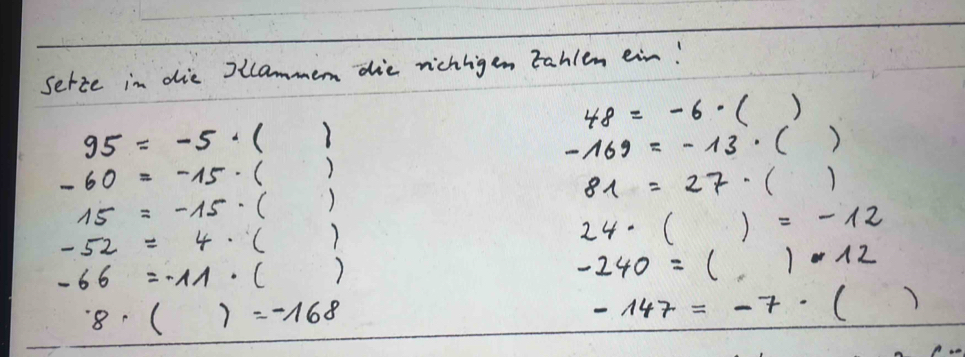 Setze in die Klammern die richtigen Zahlen ein!
95 = -5 · ( )
-60 = -15 · ( )
15 = -15 · ( )
-52 = 4 · ( )
-66 = -11 · ( )
8 · ( ) = -168
48 = -6 · ( )
-169 = -13 · ( )
81 = 27 · ( )
24 · ( ) = -12
-240 = ( ) · 12
-147 = -7 · ( )